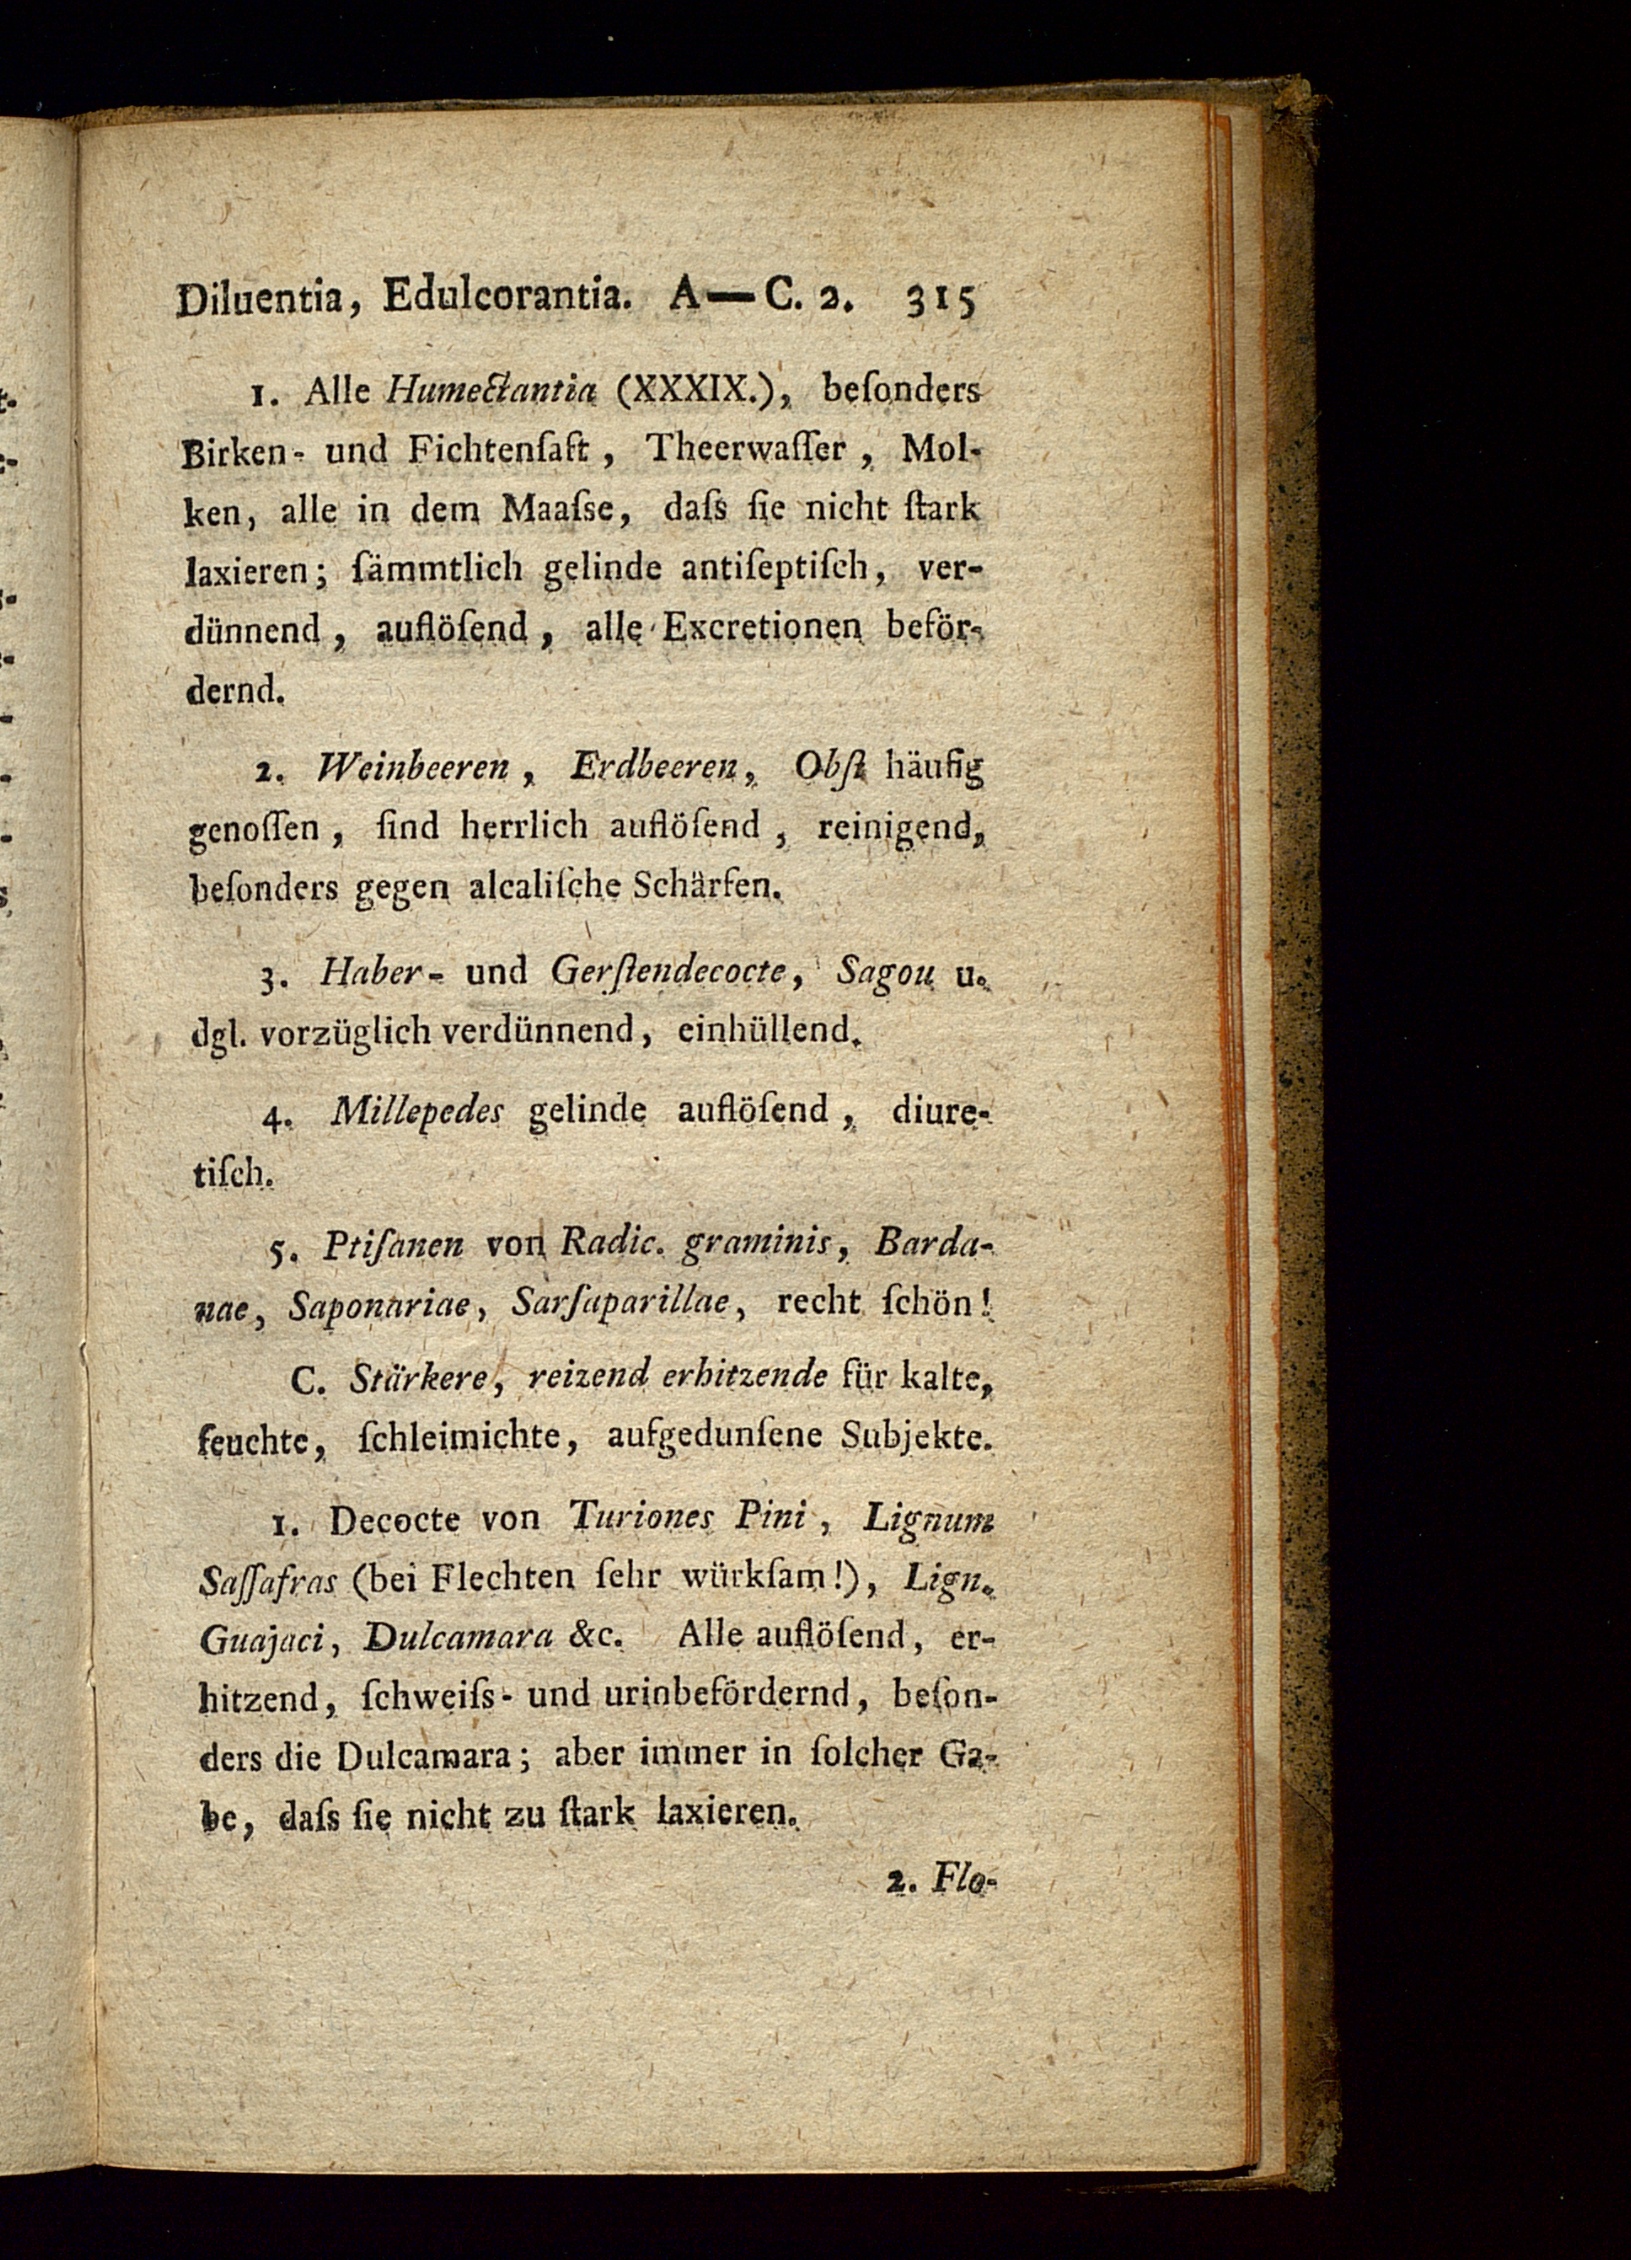 Diluentia, Edulcorantia. A — C. 2. 315
1. Alle Humectantia (XXXIX.), beſonders
Birken- und Fichtenſaft, Theerwaſſer, Mol-
ken, alle in dem Maaſse, daſs ſie nicht ſtark
laxieren; ſämmtlich gelinde antiſeptiſch, ver-
dünnend, auflöſend, alle Excretionen beför-
dernd.
2. Weinbeeren, Erdbeeren, Obſt häufig
genoſſen, ſind herrlich auflöſend, reinigend,
beſonders gegen alcaliſche Schärfen.
3. Haber- und Gerſtendecocte, Sagou u.
dgl. vorzüglich verdünnend, einhüllend.
4. Millepedes gelinde auflöſend, diure-
tiſch.
5. Ptiſanen von Radic. graminis, Barda-
nae, Saponariae, Sarſaparillae, recht ſchön!
C. Stärkere, reizend erhitzende für kalte,
feuchte, ſchleimichte, aufgedunſene Subjekte.
1. Decocte von Turiones Pini, Lignum
Saſſafras (bei Flechten ſehr würkſam!), Lign.
Guajaci, Dulcamara &c. Alle auflöſend, er-
hitzend, ſchweiſs- und urinbefördernd, beſon-
ders die Dulcamara; aber immer in ſolcher Ga-
be, daſs ſie nicht zu ſtark laxieren.
2. Flo-